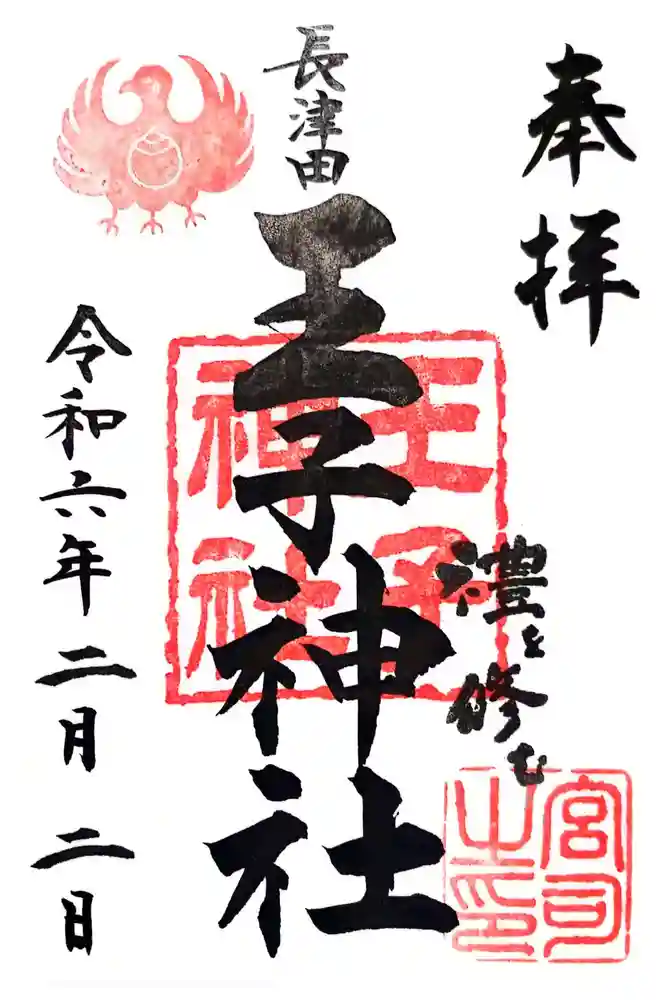 奉拝
禮を修む
宮司
之印
長津田
王子神社
王子
神社
令和六年二月二日